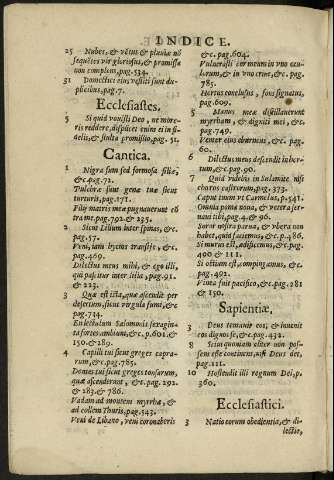 INDICE.
25 Nubes, & vētus & pluuiæ nō
sequētes vir gloriosus, & promissa
non complens, pag. 534.
31 Domestici eius vestiti sunt du-
plicibus, pag. 7.
Ecclesiastes.
5 Si quid vouisti Deo, ne more-
ris reddere, displicet enim ei infi-
delis, & stulta promissio, pag. 51.
Cantica.
1 Nigra sum sed formosa filiæ,
&c. pag. 72.
Pulchræ sunt genæ tuæ sicut
turturis, pag. 171.
Filij matris meæ pugnauerunt cō
tra me. pag. 792. & 235.
2 Sicut Lilium inter spinas, &c.
pag. 57.
Veni, iam hyems transijt, &c.
pag. 469.
Dilectus meus mihi, & ego illi,
qui pascitur inter lilia, pag. 91.
& 223.
3 Quæ est ista, quæ ascendit per
desertum, sicut virgula fumi, &c.
pag. 714.
En lectulum Salomonis sexagin-
ta fortes ambiunt, &c. p. 601. &
150. & 289.
4 Capilli tui sicut greges capra-
rum, &c. pag. 785.
Dentes tui sicut greges tonsarum,
quæ ascenderunt, &c. pag. 292.
& 283. & 786.
Vadam ad montem myrrhæ, &
ad collem Thuris, pag. 543.
Veni de Libano, veni coronaberis
& c. pag. 604.
Vulnerasti cor meum in vno ocu-
lorum, & in vno crine, &c. pag.
785.
Hortus conclusus, fons signatus,
pag. 609.
5 Manus meæ distillauerunt
myrrham, & digniti mei, &c.
pag. 749.
Venter eius eburneus, &c. pag.
60.
6 Dilectus meus descendit in hor-
tum, &c. pag. 90.
7 Quid videbis in Sulamite nisi
choros castrorum, pag. 373.
Caput tuum vt Carmelus, p. 541.
Omnia poma noua, & vetera ser-
uaui tibi, pag. 4. & 96.
8 Soror nostra parua, & vbera non
habet, quid faciemus, &c. p. 486.
Si murus est, ædificemus, &c. pag.
400 & 111.
Si ostium est, compingamus, &c.
pag. 402.
Vinea fuit pacifico, &c. pag. 281
& 150.
Sapientiæ.
3 Deus temtauit eos, & inuenit
eos dignos se, pag. 432.
8 Sciui quoniam aliter non pos-
sem esse continens, nisi Deus det,
pag. 111.
10 Hostendit illi regnum Dei, p.
360.
Ecclesiastici.
3 Natio eorum obedientia, & di-
lectio,